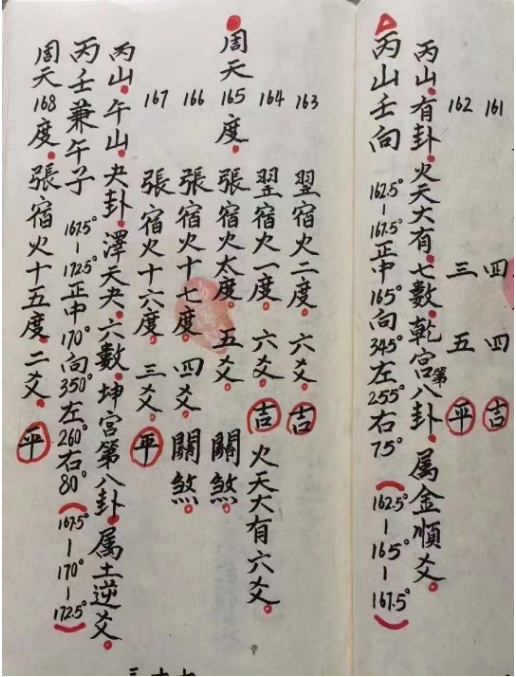 161 四 四 吉
162 三 五 平
丙山。有卦。火天大有。七數。乾宮第八卦。属金順爻。
丙山壬向 162.5°-167.5°正中165°向345°左255°右75°(162.5°-165°-167.5°)
163 翌宿火二度。六爻。吉
164 翌宿火一度。六爻。吉 火天大有六爻。
周天165度。張宿火太度。五爻。關煞。
166 張宿火十七度。四爻。關煞。
167 張宿火十六度。三爻。平
丙山。午山。夬卦。澤天夬。六數。坤宮第八卦。属土逆爻。
丙壬兼午子 167.5°-172.5°正中170°向350°左260°右80°(167.5°-170°-172.5°)
周天168度。張宿火十五度。二爻。平